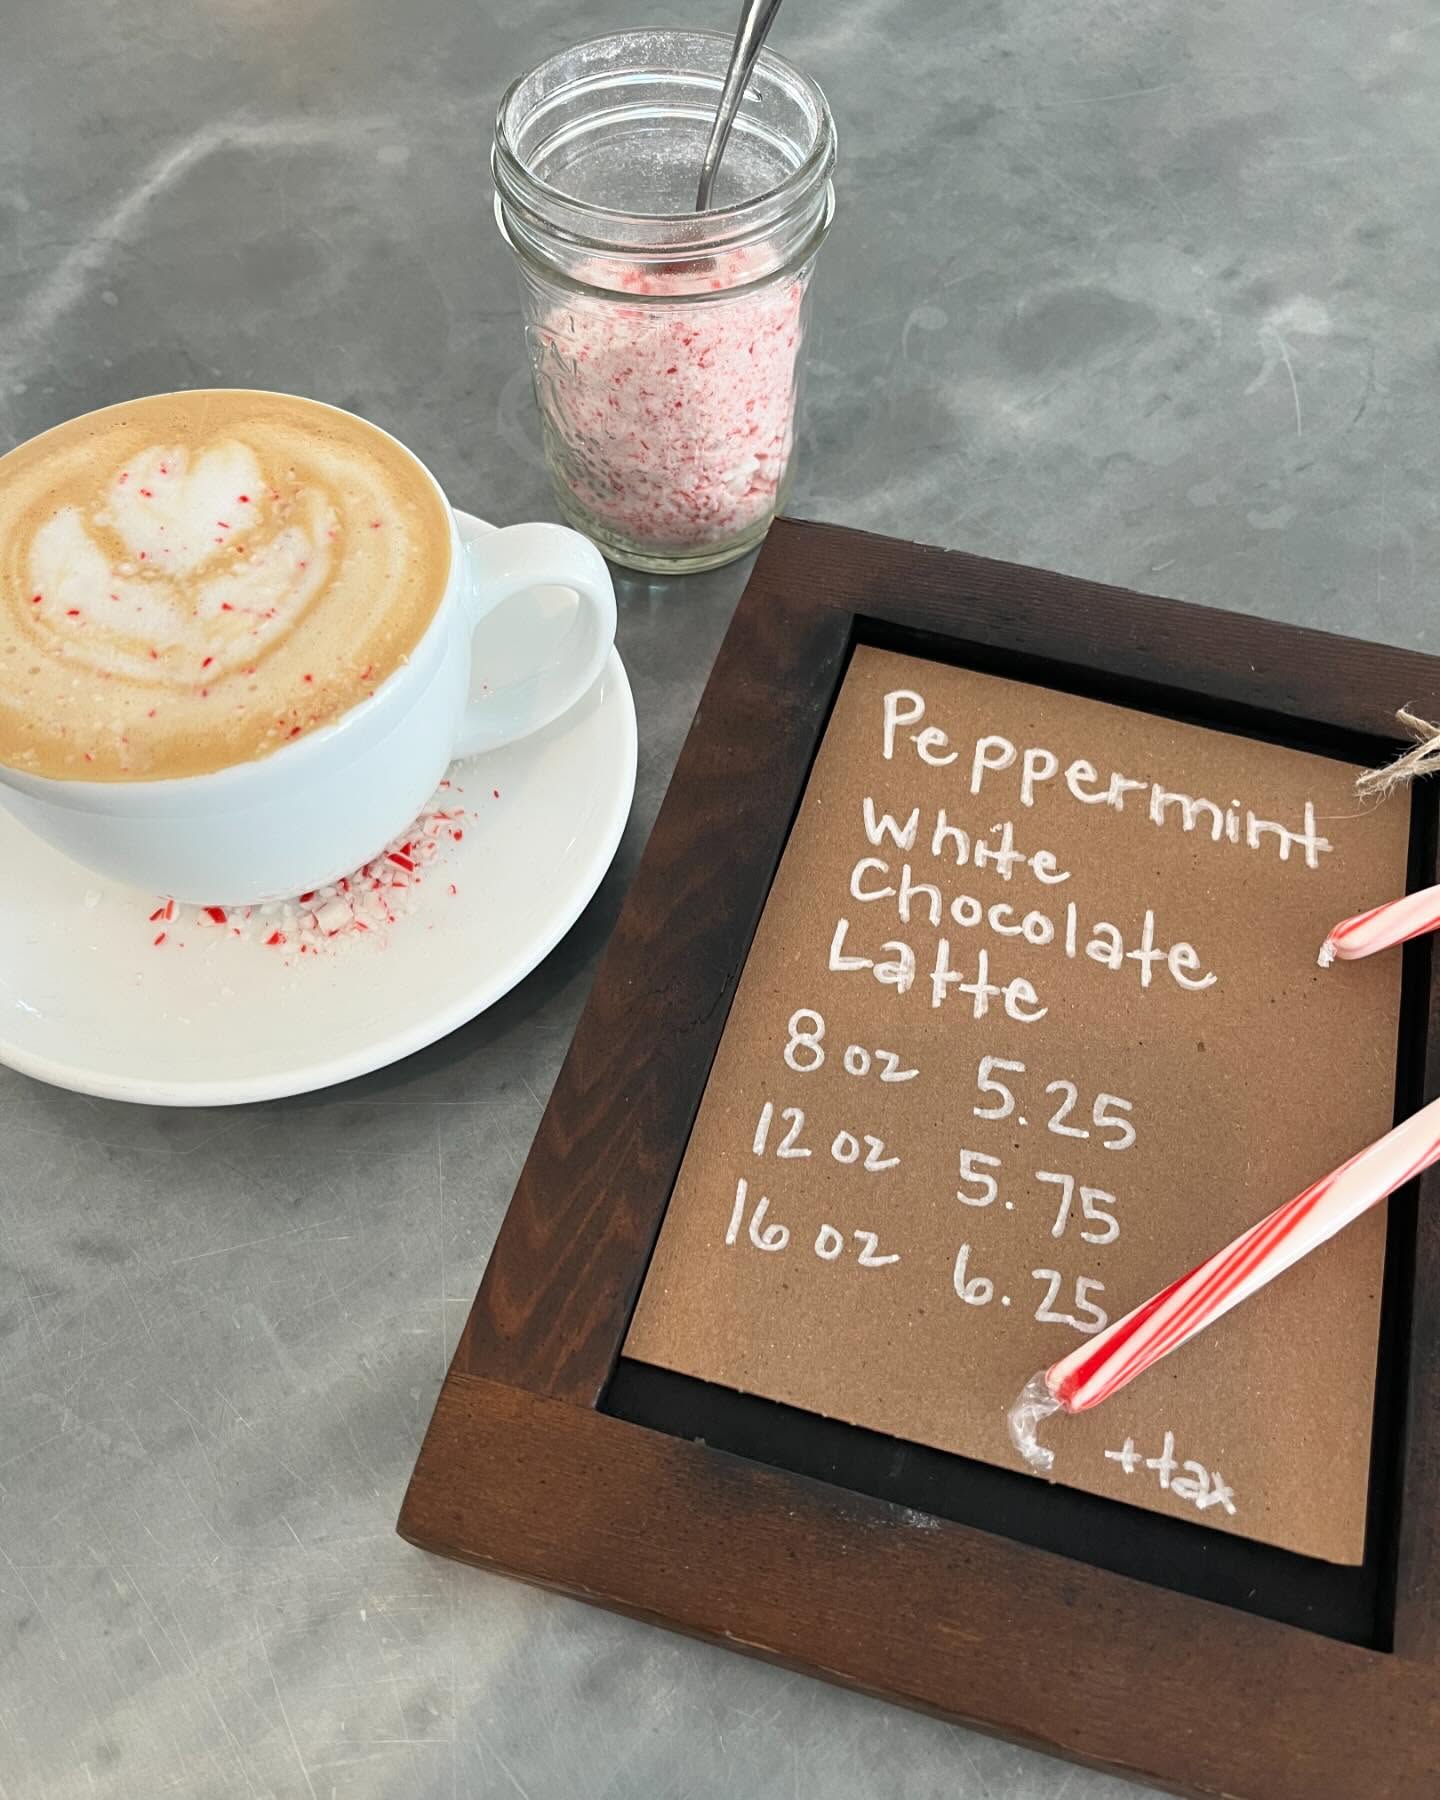 Peppermint
White
Chocolate
Latte
8 oz 5.25
12 oz 5.75
16 oz 6.25
+tax